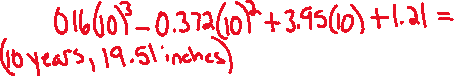 016(10)³ - 0.372(10)² + 3.95(10) + 1.21 =
(10 years, 19.51 inches)